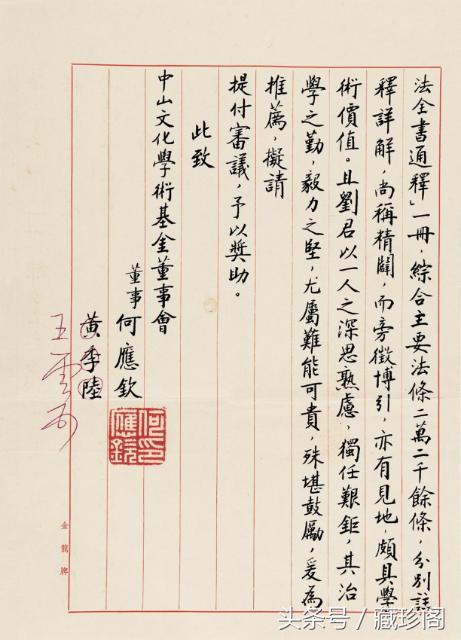 法全書通釋」一冊，綜合主要法條二萬二千餘條，分別註
釋詳解，尚稱精闢，而旁徵博引，亦有見地，頗具學
術價值。且劉君以一人之深思熟慮，獨任艱鉅，其冶
學之勤，毅力之堅，尤屬難能可貴，殊堪鼓勵，爰為
推薦，擬請
提付審議，予以獎助。
此致
中山文化學術基金董事會
董事 何應欽
何應欽印
黃季陸
王雲五
金龍牌
头条号／藏珍阁